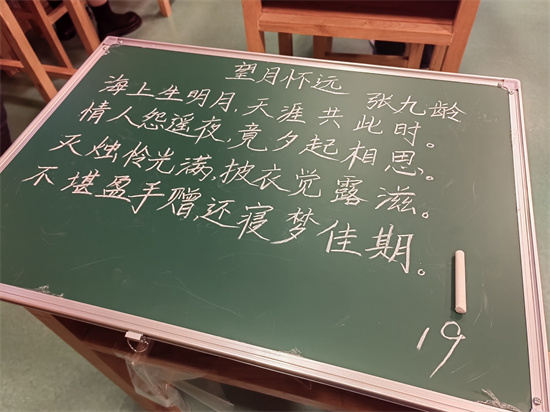 望月怀远 张九龄
海上生明月,天涯共此时。
情人怨遥夜,竟夕起相思。
灭烛怜光满,披衣觉露滋。
不堪盈手赠,还寝梦佳期。
19